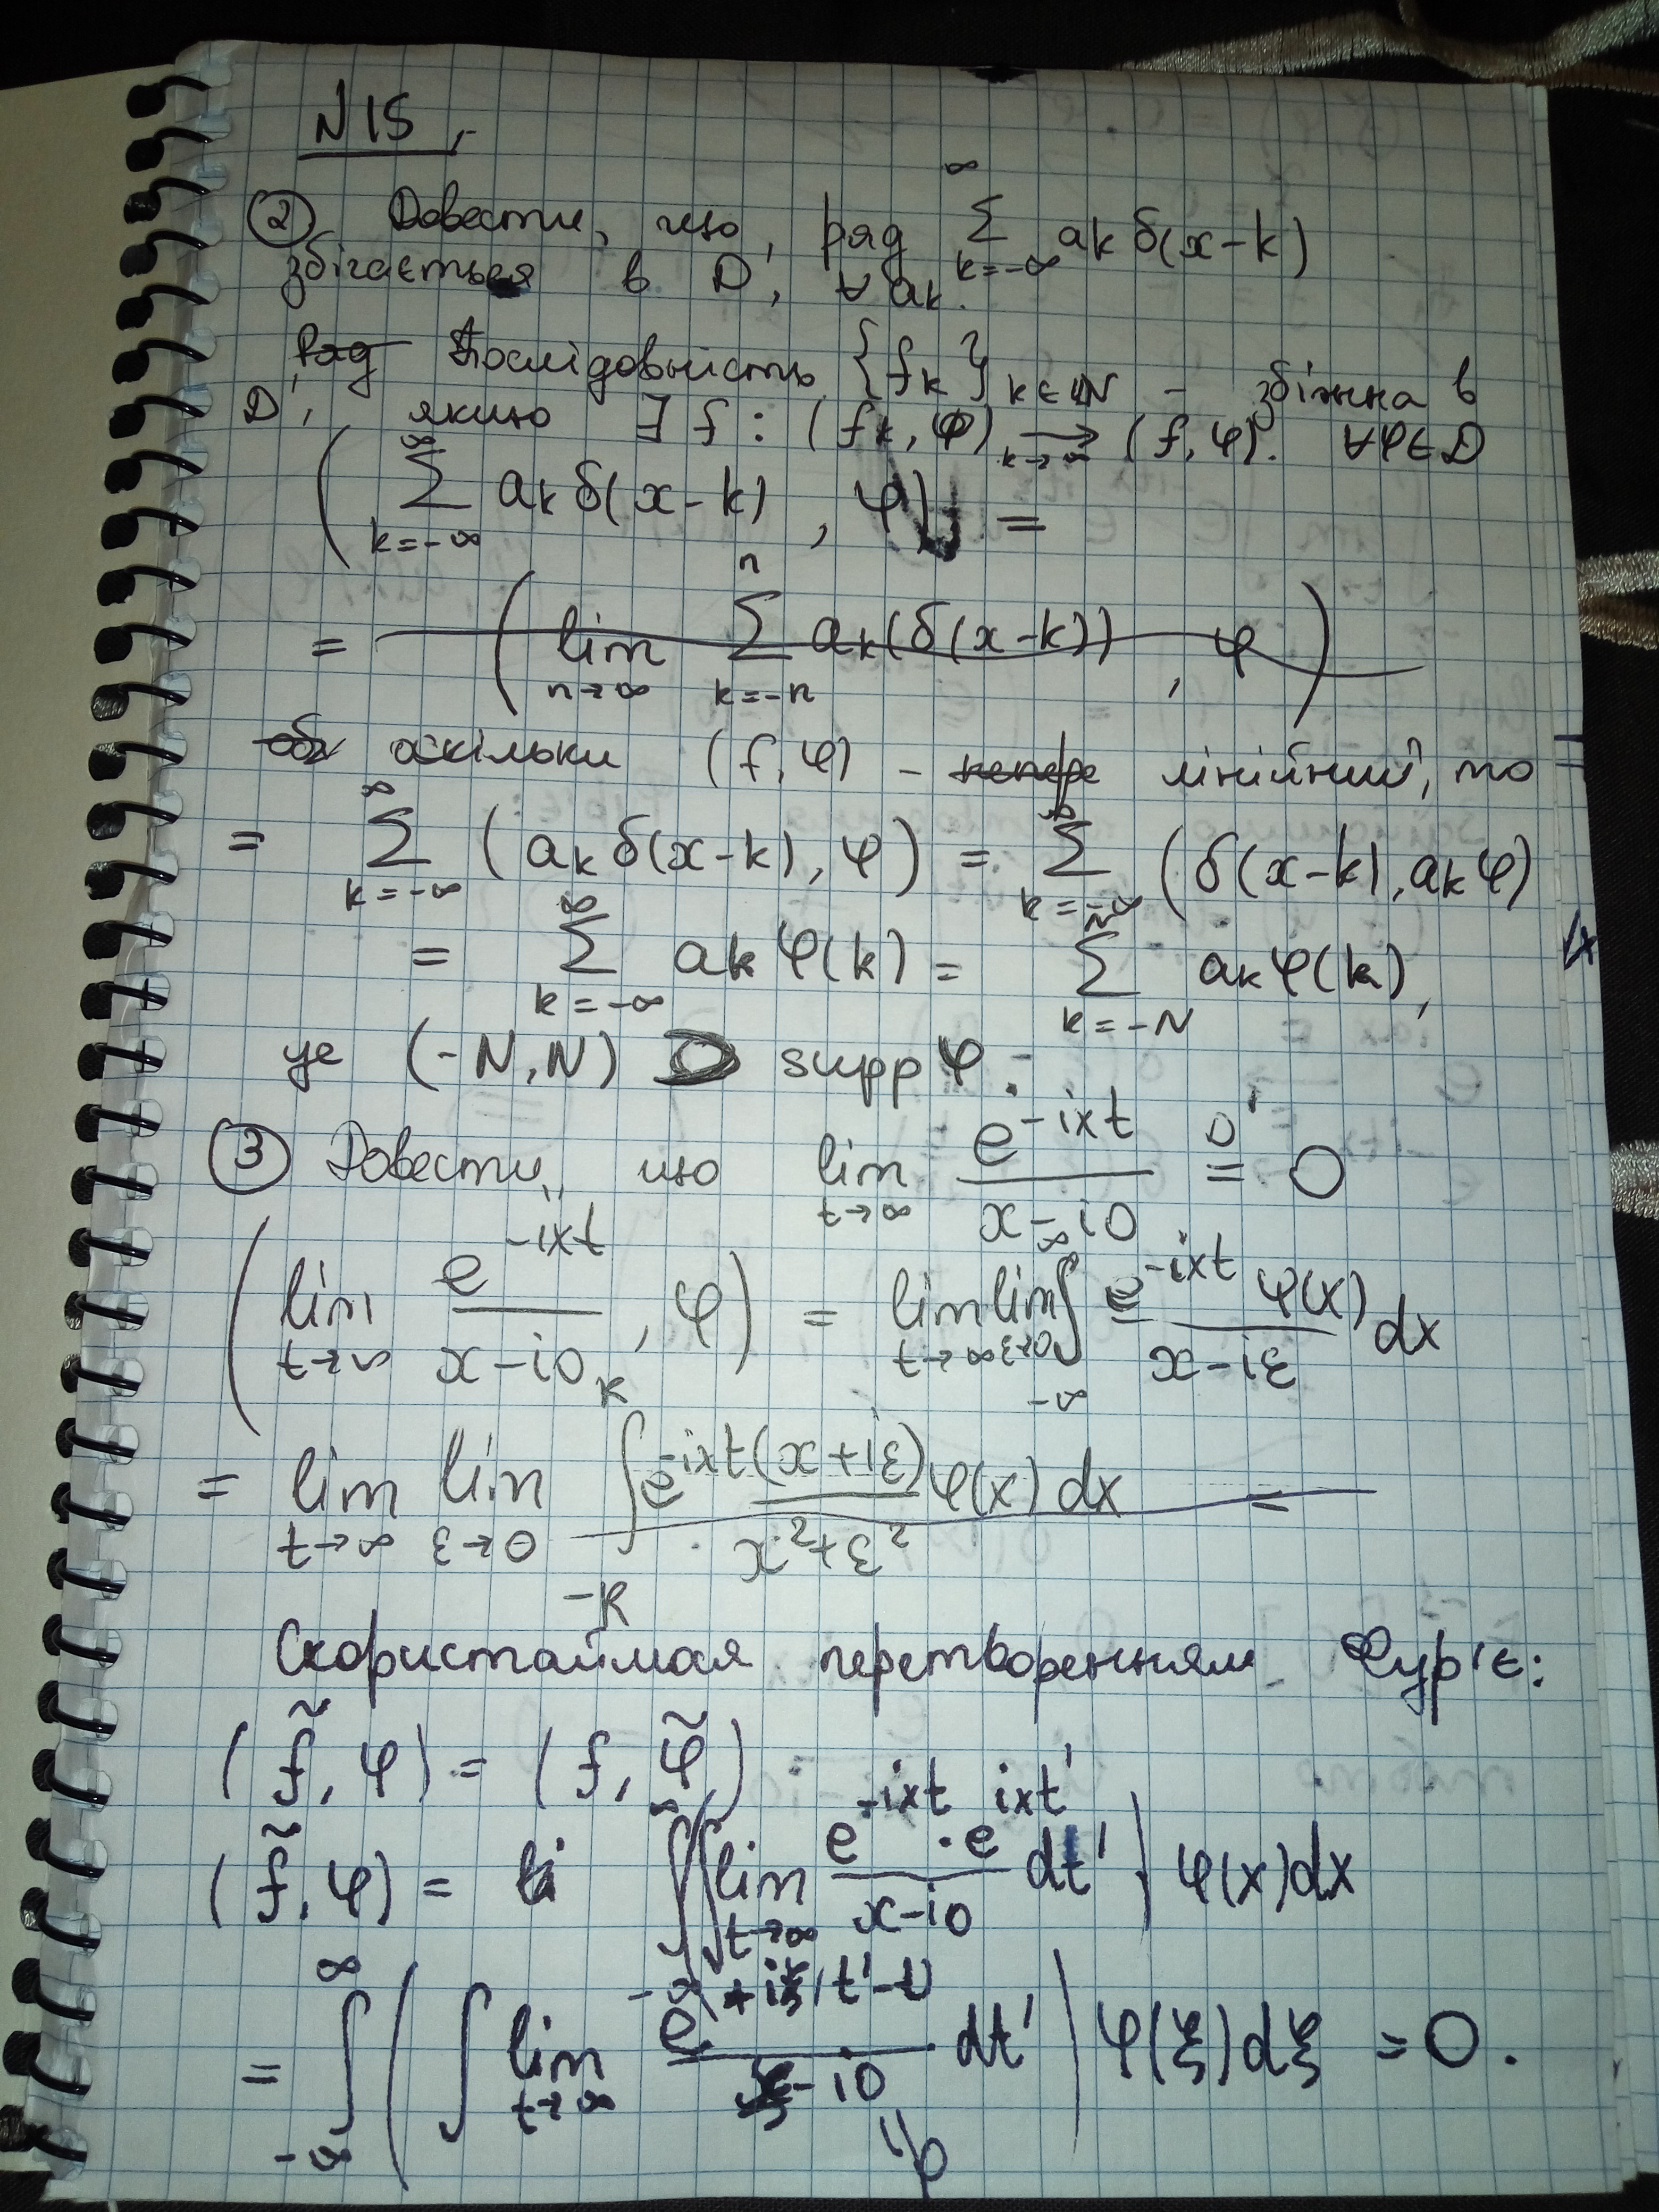 N 15.
② Довести, що, ряд ∑_{k=-∞}^{∞} a_k δ(x-k)
збігається в D', ∀ a_k.
Ряд Послідовність {f_k}_{k∈ℕ} - збіжна в
D', якщо ∃ f : (f_k, φ) →_{k→∞} (f, φ). ∀φ∈D
(∑_{k=-∞}^{∞} a_k δ(x-k), φ) =
= (lim_{n→∞} ∑_{k=-n}^{n} a_k(δ(x-k)), φ)
оскільки (f, φ) - лінійний, то
= ∑_{k=-∞}^{∞} (a_k δ(x-k), φ) = ∑_{k=-∞}^{∞} (δ(x-k), a_k φ)
= ∑_{k=-∞}^{∞} a_k φ(k) = ∑_{k=-N}^{N} a_k φ(k),
це (-N, N) ⊃ supp φ.
③ Довести, що lim_{t→∞} e^{-ixt}/(x-i0) =^{D'} 0
(lim_{t→∞} e^{-ixt}/(x-i0), φ) = lim_{t→∞} lim_{ε→0} ∫_{-∞}^{∞} e^{-ixt} φ(x)/(x-iε) dx
= lim_{t→∞} lim_{ε→0} ∫_{-R}^{R} e^{-ixt}(x+iε)/(x²+ε²) φ(x) dx =
Скористаймося перетворенням Фур'є:
(f̃, φ) = (f, φ̃).
(f̃, φ) = ∫∫_{-∞}^{∞} lim_{t→∞} e^{-ixt}·e^{ixt'}/(x-i0) dt') φ(x)dx
= ∫_{-∞}^{∞} (∫ lim_{t→∞} e^{+iξ(t'-t)}/(ξ-i0) dt') φ(ξ)dξ = 0.